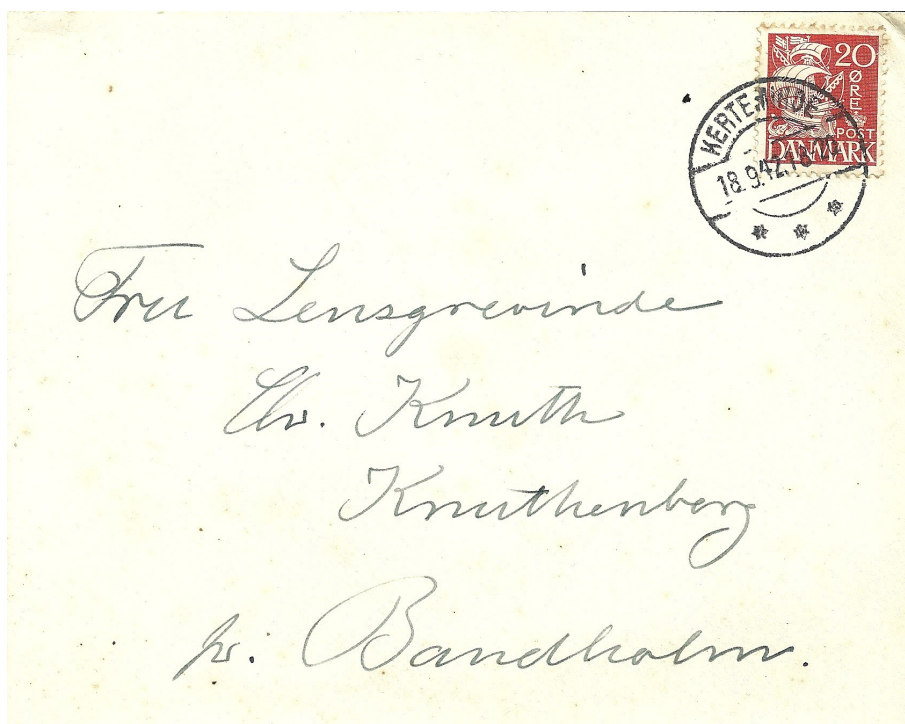 20
ØRE
POST
DANMARK
KERTEMINDE
18.9.42.18-20
Fru Lensgrevinde
Knuth
Knuthenborg
pr. Bandholm.